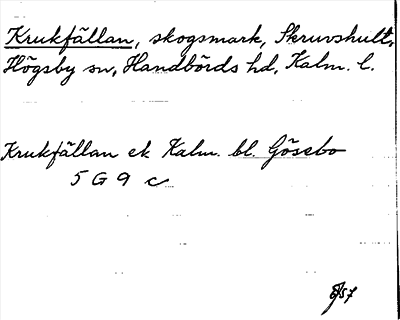 Krukfällan, skogsmark, Skruvshult,
Högsby sn, Handbörds hd, Kalm. l.
Krukfällan ek Kalm. bl. Gösebo
5 G 9 c